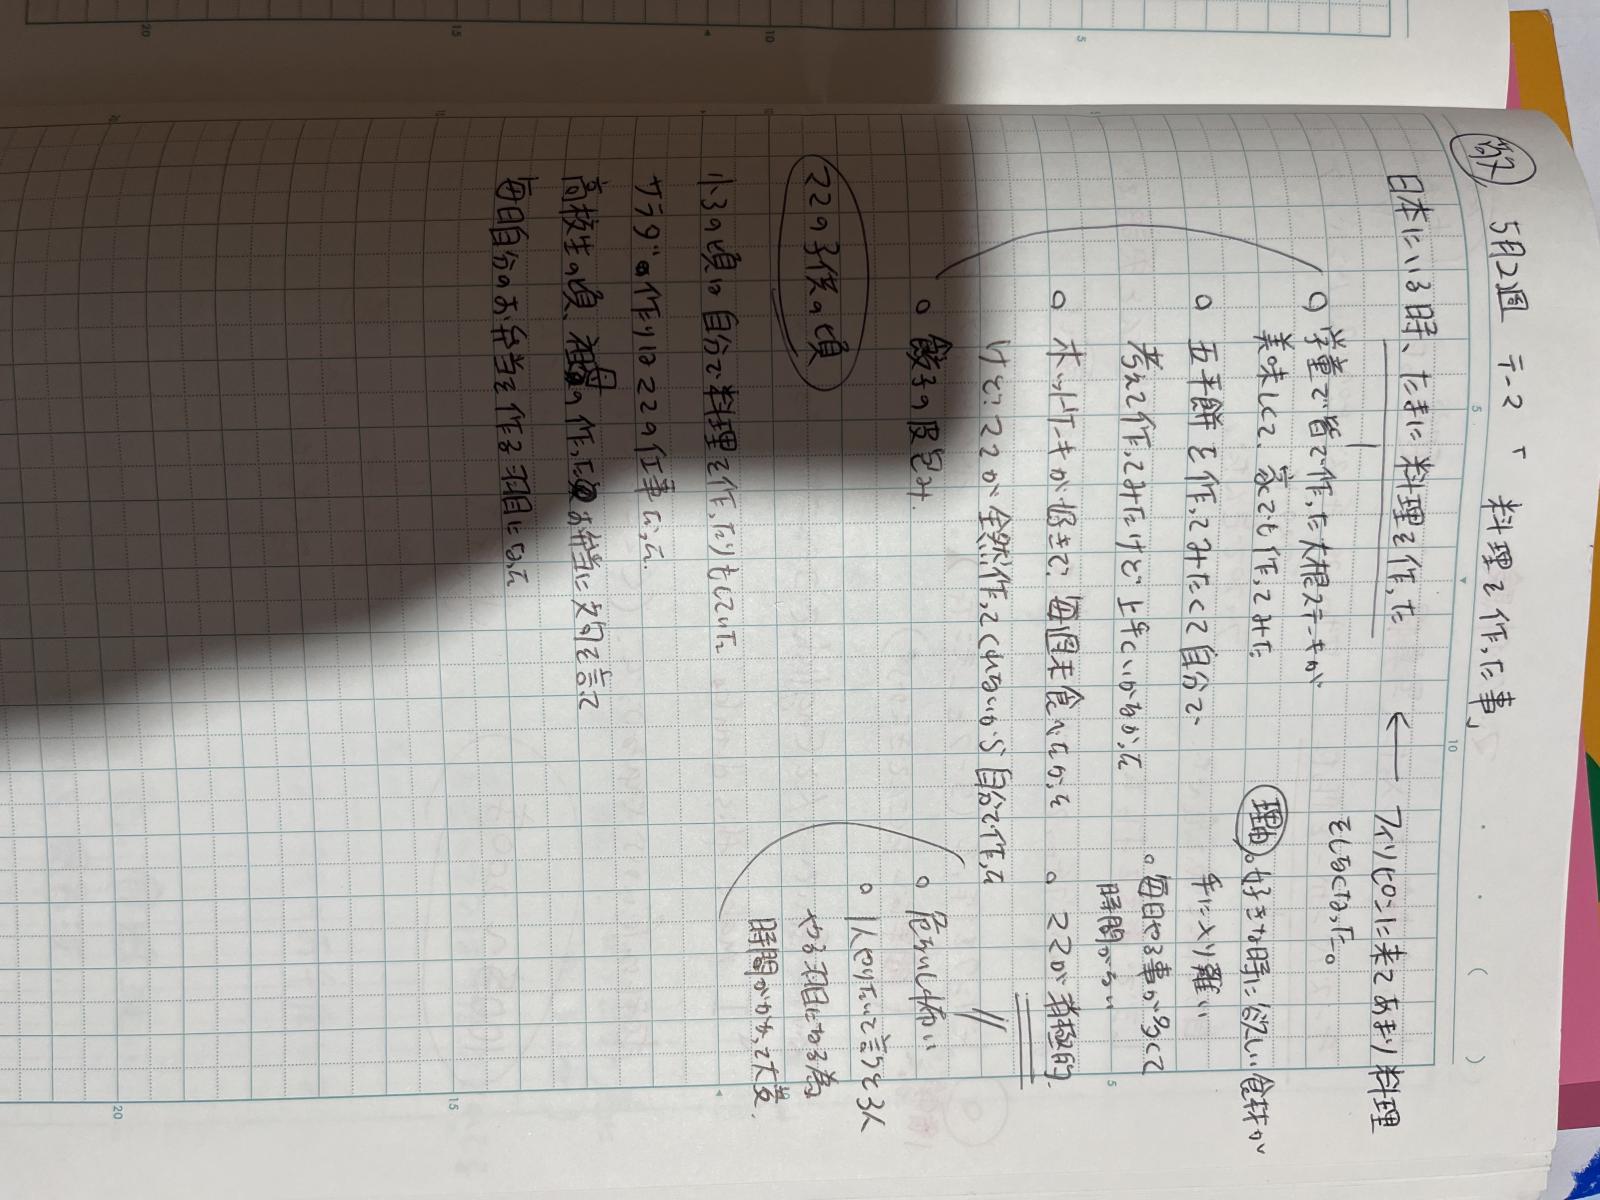 5月2週 テーマ「料理を作った事」
日本にいる時、たまに料理を作った
学童で皆で作った大根ステーキが
美味しくて、家でも作ってみた
五平餅を作ってみたくて自分で
考えて作ってみたけど上手くいかなかった
ホットケーキが好きで、毎週末食べたかった
けど、ママが全然作ってくれないから自分で作った
餃子の皮包み
← フィリピンに来てあまり料理
をしなくなった。
理由。好きな時に欲しい食材が
手に入り難い
。毎日やる事が多くて
時間がない
。ママが消極的
。危ないし怖い
。1人がやりたいと言うと3人
やる羽目になる為
時間がかかって大変
ママの子供の頃
小3の頃は自分で料理を作ったりもしていた
サラダの作りはママの仕事だった
高校生の頃 祖母の作ったお弁当に文句を言って
毎日自分のお弁当を作る羽目になった
5
10
15
20
5
10
15
20